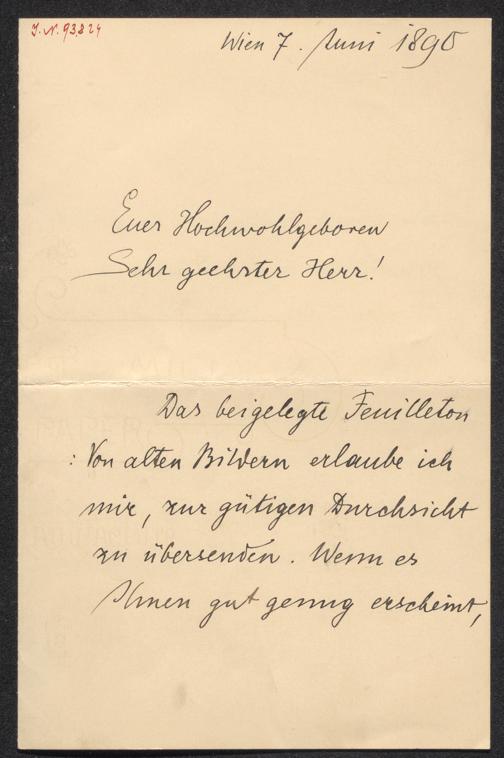 J.N. 93.824
Wien 7. Juni 1890
Euer Hochwohlgeboren
Sehr geehrter Herr!
Das beigelegte Feuilleton
: Von alten Bildern erlaube ich
mir, zur gütigen Durchsicht
zu übersenden. Wenn es
Ihnen gut genug erscheint,